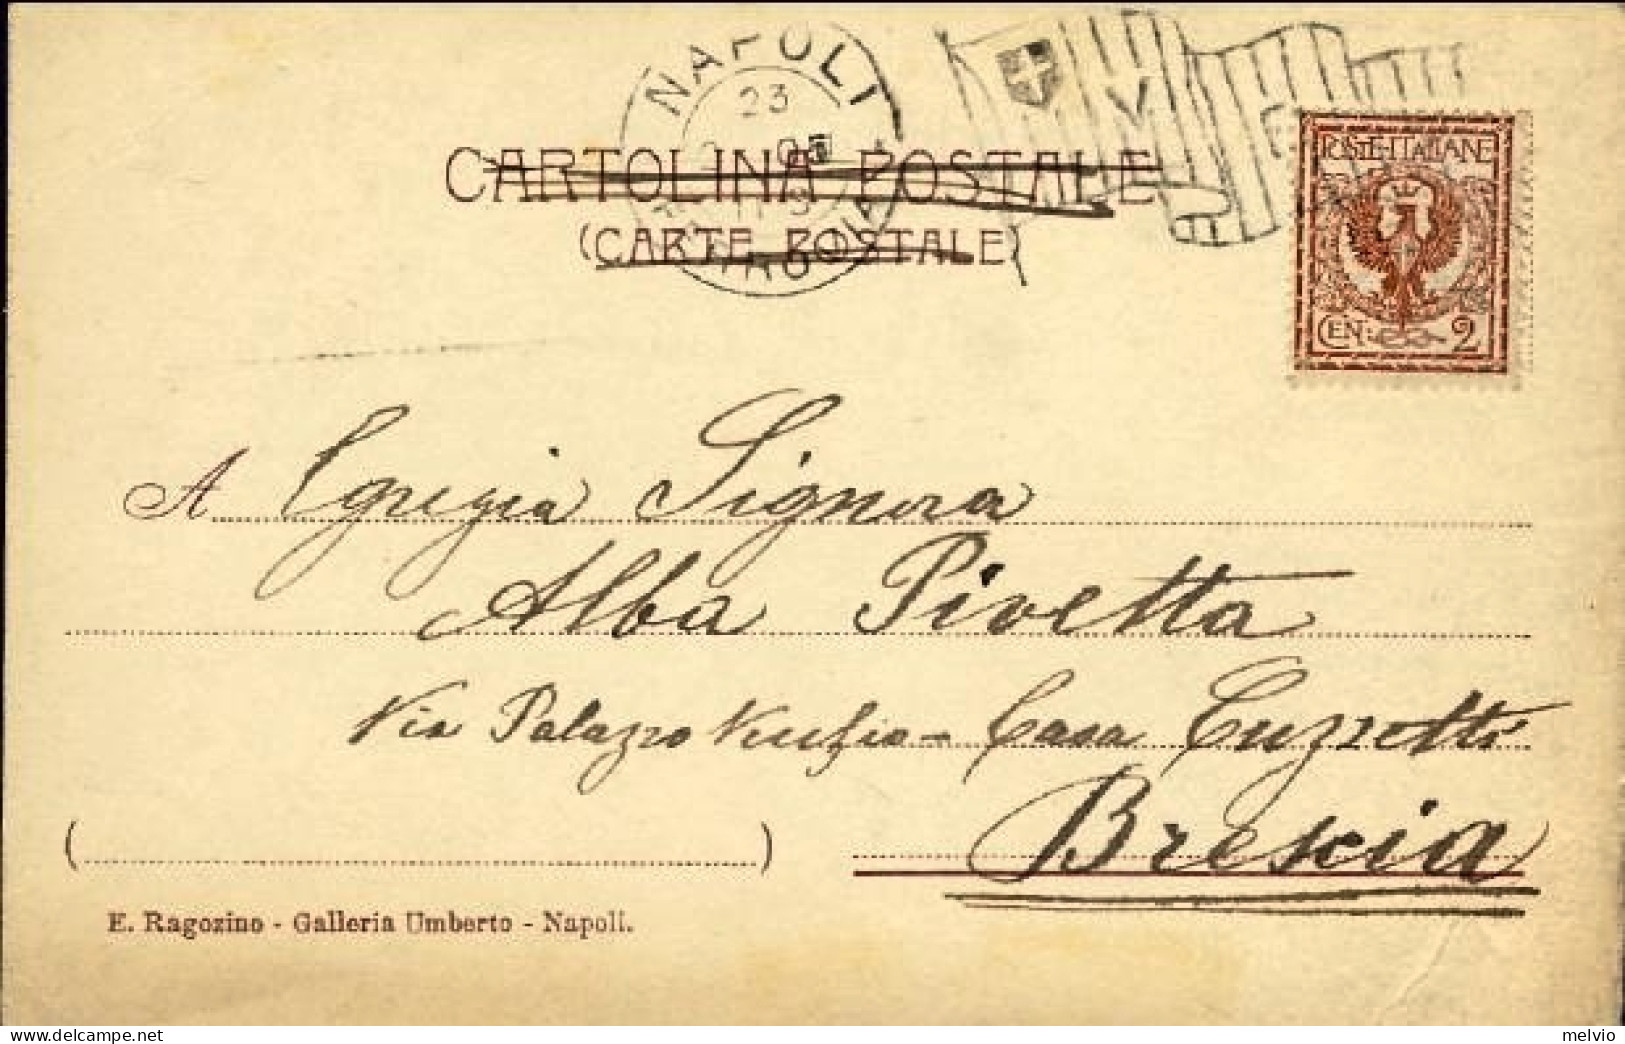 NAPOLI
23
05
CARTOLINA POSTALE
(CARTE POSTALE)
POSTE·ITALIANE
CEN: 2
A Egregia Signora
Alba Pivetta
Via Palazzo Vecchio – Casa Cuzzetti
Brescia
( )
E. Ragozino - Galleria Umberto - Napoli.
melvio